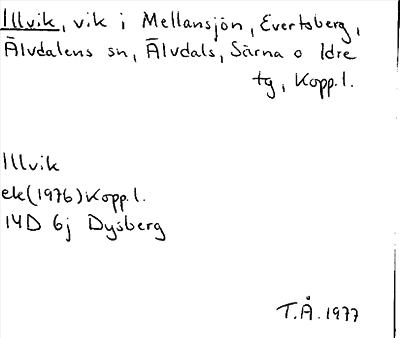 Illvik, vik i Mellansjön, Evertsberg,
Älvdalens sn, Älvdals, Särna o Idre
tg, Kopp.l.
Illvik
ek(1976) Kopp.l.
14D 6j Dysberg
T.Å. 1977